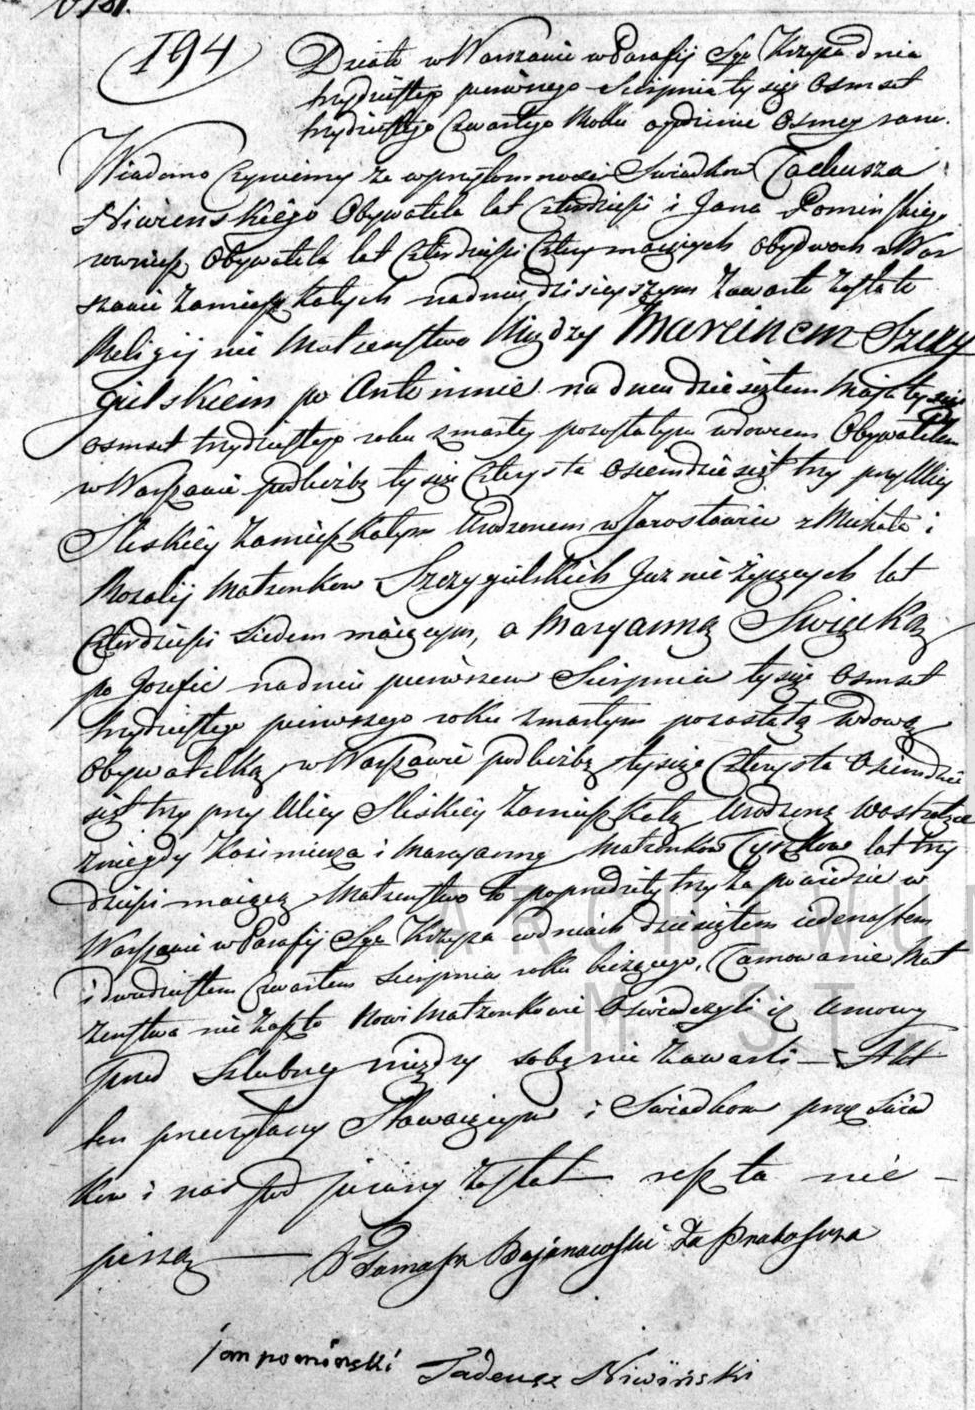 194
Działo w Warszawie w Parafij Sgo Krzyża dnia
trzydziestego pierwszego Sierpnia tysiąc osmset
trzydziestego czwartego Roku ogodzinie osmey rano.
Wiadomo Czyniemy że wprzytomnosci Swiadków Tadeusza
Niwinskiego Obywatela lat czterdziesci i Jana Pominskiego
rownież Obywatela lat czterdziesci cztery maiących obydwoch w War
szawie zamieszkałych na dniu dzisieyszym Zawarte Zostało
Religijne Małżeństwo Między Marcinem Szczy
gielskiem po Antoninie na dniu dziesiątem Maja tysiąc
osmset trzydziestego roku zmarłey pozostałym wdowcem Obywatelem
w Warszawie pod liczbą tysiąc czterysta osiemdziesiąt trzy przy Ulicy
Sliskiey zamieszkałym Urodzonem w Jarosławiu z Michała i
Rozalij Małżonkow Szczygielskich Już nieżyjących lat
czterdziesci siedem maiącym, a Maryanną Swięcką
po Jozefie na dniu pierwszem Sierpnia tysiąc osmset
trzydziestego pierwszego roku zmarłym pozostałą wdową
Obywatelką w Warszawie pod liczbą tysiąc czterysta osiemdzie
siąt trzy przy Ulicy Sliskiey zamieszkałą Urodzoną
z niegdy Kazimierza i Maryanny Małżonków lat trzy
dziesci maiącą Małżeństwo to poprzedziły trzy Zapowiedzie w
Warszawie w Parafij Sgo Krzyża w dniach dziesiątem iedenastem
i dwudziestem czwartem Sierpnia roku bieżącego, Tamowanie Mał
żeństwa nie zaszło Nowi Małżonkowie Oświadczyli iż Umowy
przed Slubney między sobą nie zawarli — Akt
ten przeczytany Stawaiącym i Swiadkom przez Swiad
kow i nas podpisany został reszta nie —
piszą — X Tomasz Bojanowski Za Proboszcza
jan pomiński Tadeusz Niwiński
ARCHIWU
M ST